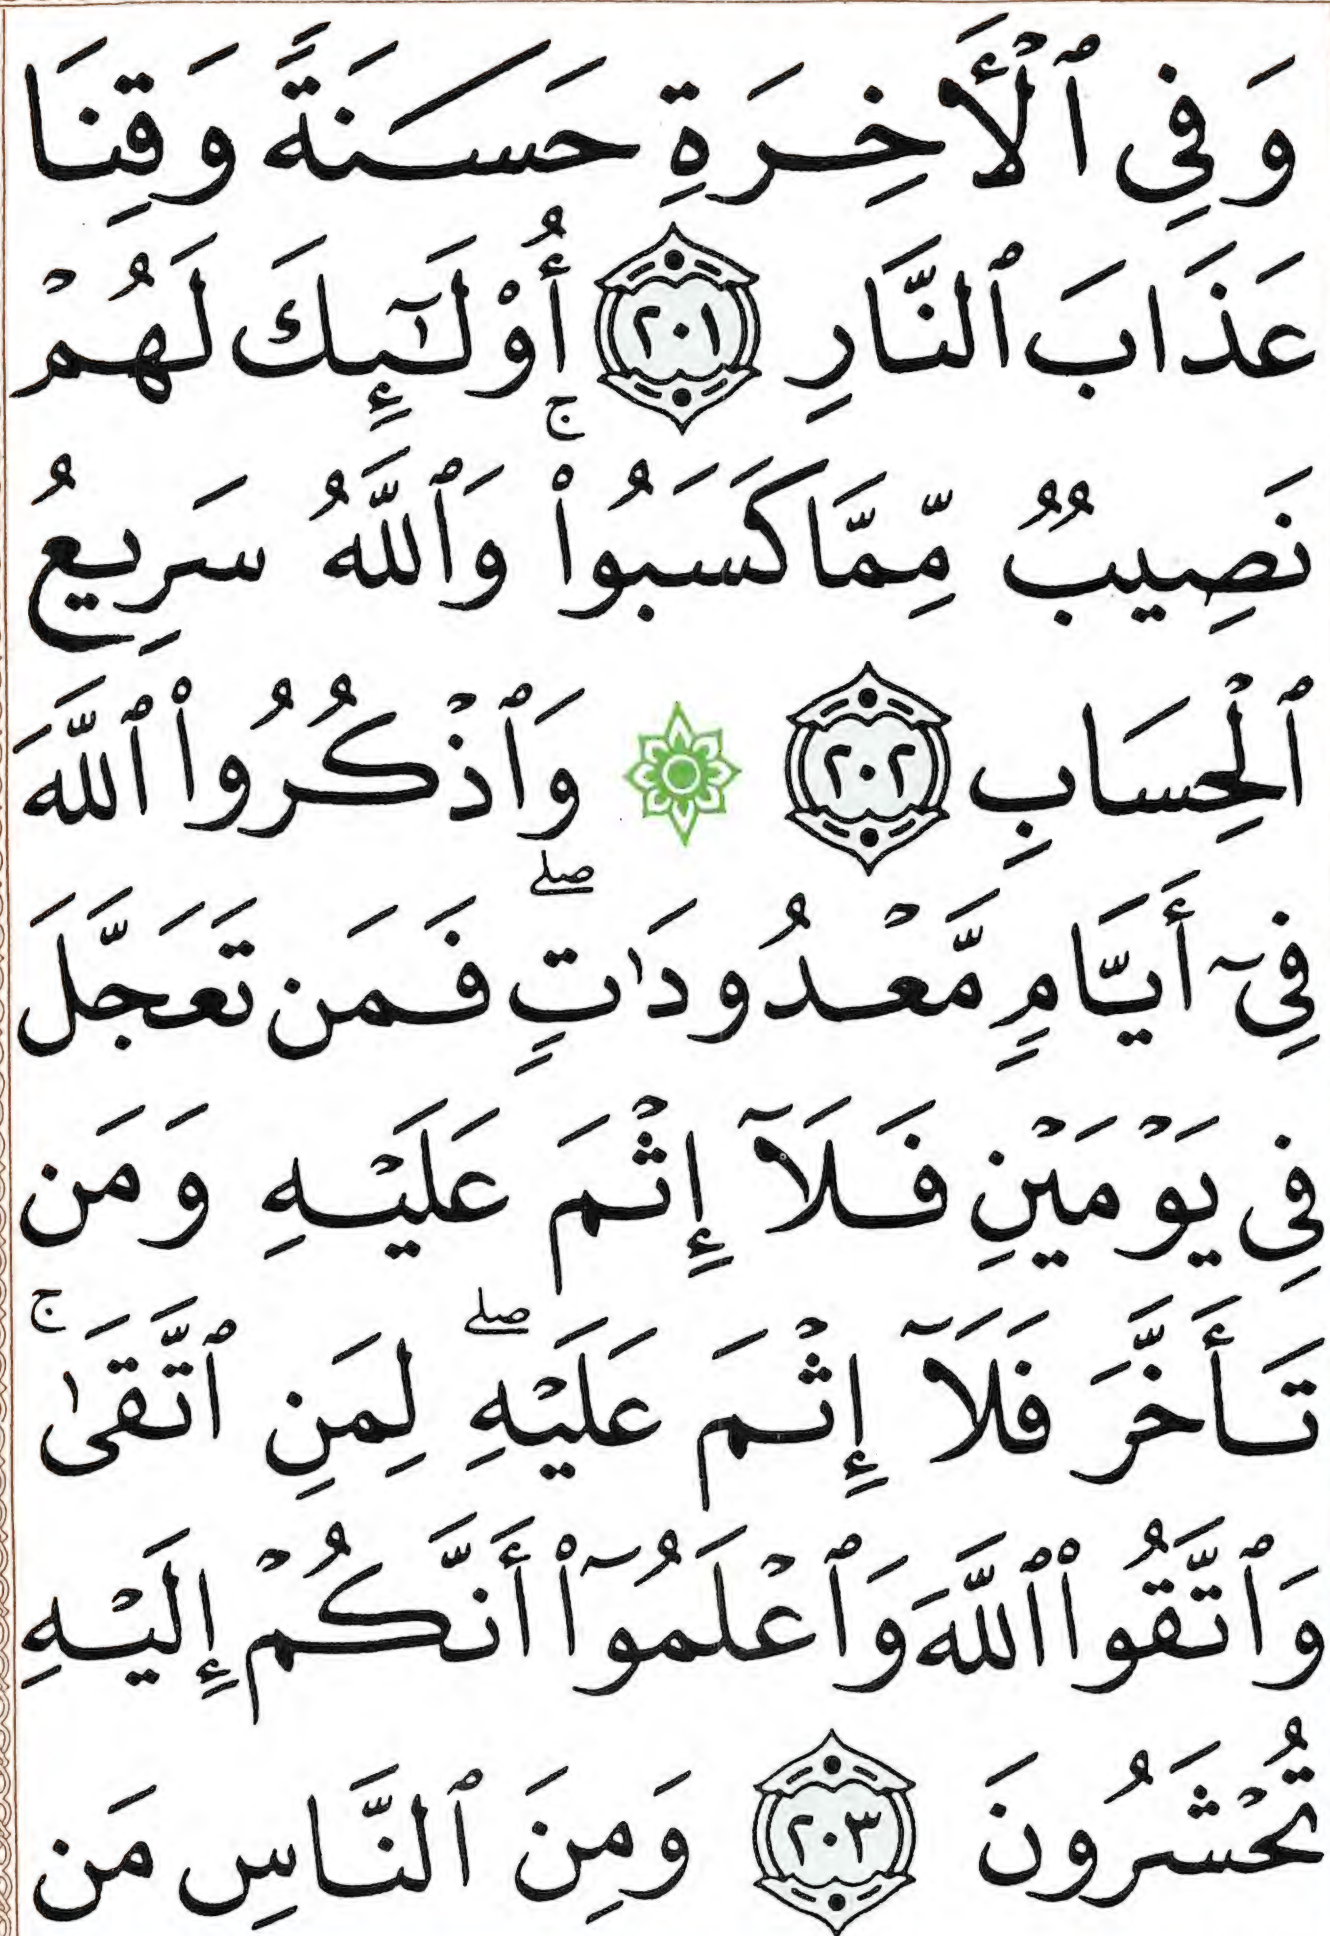 وَفِى ٱلْأَخِرَةِ حَسَنَةً وَقِنَا
عَذَابَ ٱلنَّارِ ٢٠١ أُو۟لَـٰٓئِكَ لَهُمْ
نَصِيبٌ مِّمَّا كَسَبُوا۟ ۚ وَٱللَّهُ سَرِيعُ
ٱلْحِسَابِ ٢٠٢ ۞ وَٱذْكُرُوا۟ ٱللَّهَ
فِىٓ أَيَّامٍ مَّعْدُودَٰتٍ ۖ فَمَن تَعَجَّلَ
فِى يَوْمَيْنِ فَلَآ إِثْمَ عَلَيْهِ وَمَن
تَأَخَّرَ فَلَآ إِثْمَ عَلَيْهِ ۖ لِمَنِ ٱتَّقَىٰ ۚ
وَٱتَّقُوا۟ ٱللَّهَ وَٱعْلَمُوٓا۟ أَنَّكُمْ إِلَيْهِ
تُحْشَرُونَ ٢٠٣ وَمِنَ ٱلنَّاسِ مَن